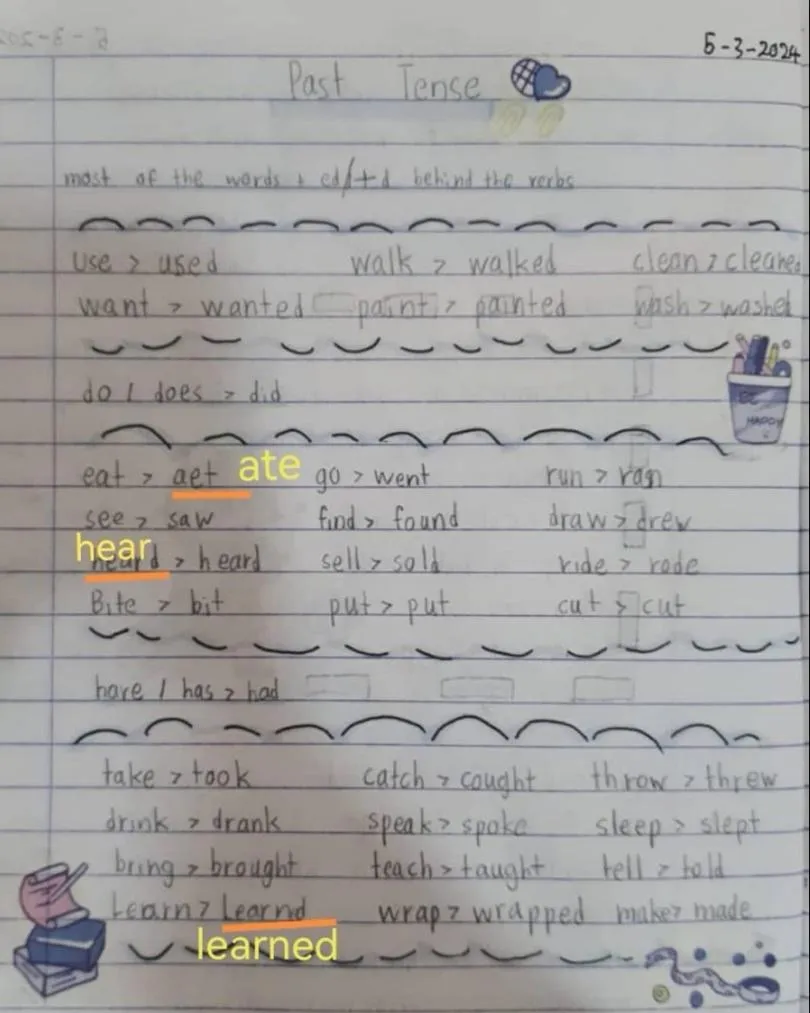 5-3-2024
Past Tense
most of the words + ed/+d behind the verbs
use > used walk > walked clean > cleaned
want > wanted paint > painted wash > washed
do / does > did
BE HAPPY
eat > aet ate go > went run > ran
see > saw find > found draw > drew
hear
heard > heard sell > sold ride > rode
Bite > bit put > put cut > cut
have / has > had
take > took catch > cought throw > threw
drink > drank speak > spoke sleep > slept
bring > brought teach > taught tell > told
Learn > Learnd wrap > wrapped make > made
learned